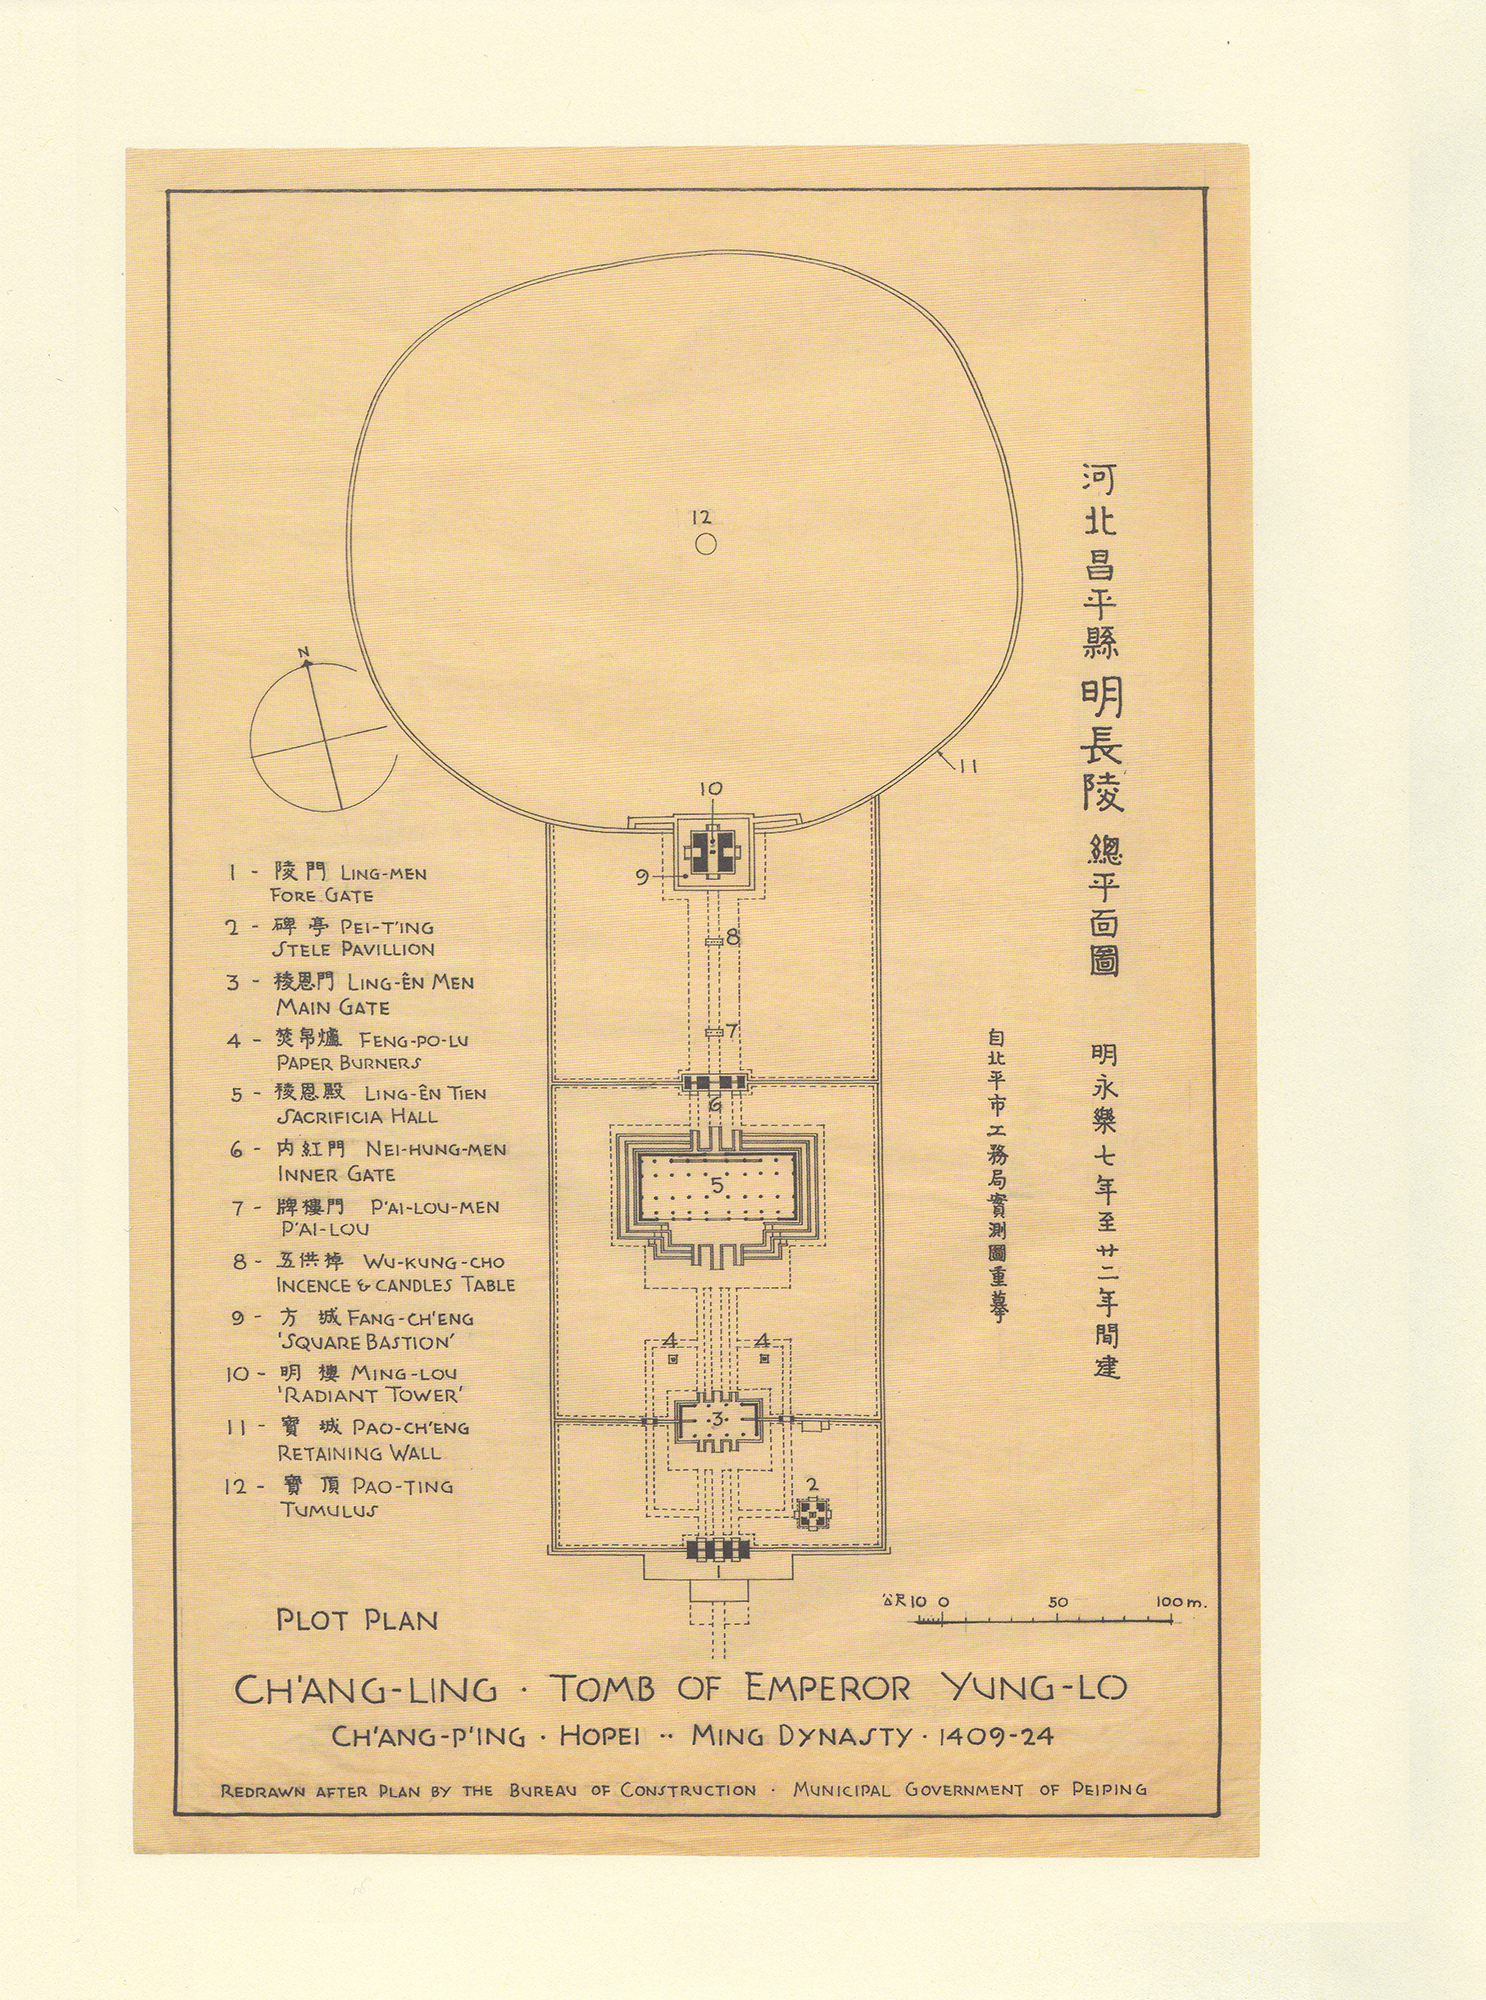 12
N
11
10
9
8
7
6
5
4 4
3
2
1
河北昌平縣明長陵總平面圖
明永樂七年至廿二年間建
自北平市工務局實測圖重摹
1 - 陵門 LING-MEN
FORE GATE
2 - 碑亭 PEI-T'ING
STELE PAVILLION
3 - 稜恩門 LING-ÊN MEN
MAIN GATE
4 - 焚帛爐 FENG-PO-LU
PAPER BURNERS
5 - 稜恩殿 LING-ÊN TIEN
SACRIFICIA HALL
6 - 内紅門 NEI-HUNG-MEN
INNER GATE
7 - 牌樓門 P'AI-LOU-MEN
P'AI-LOU
8 - 五供棹 WU-KUNG-CHO
INCENCE & CANDLES TABLE
9 - 方城 FANG-CH'ENG
'SQUARE BASTION'
10 - 明樓 MING-LOU
'RADIANT TOWER'
11 - 寶城 PAO-CH'ENG
RETAINING WALL
12 - 寶頂 PAO-TING
TUMULUS
公尺 10 0 50 100 m.
PLOT PLAN
CH'ANG-LING · TOMB OF EMPEROR YUNG-LO
CH'ANG-P'ING · HOPEI ·· MING DYNASTY · 1409-24
REDRAWN AFTER PLAN BY THE BUREAU OF CONSTRUCTION · MUNICIPAL GOVERNMENT OF PEIPING